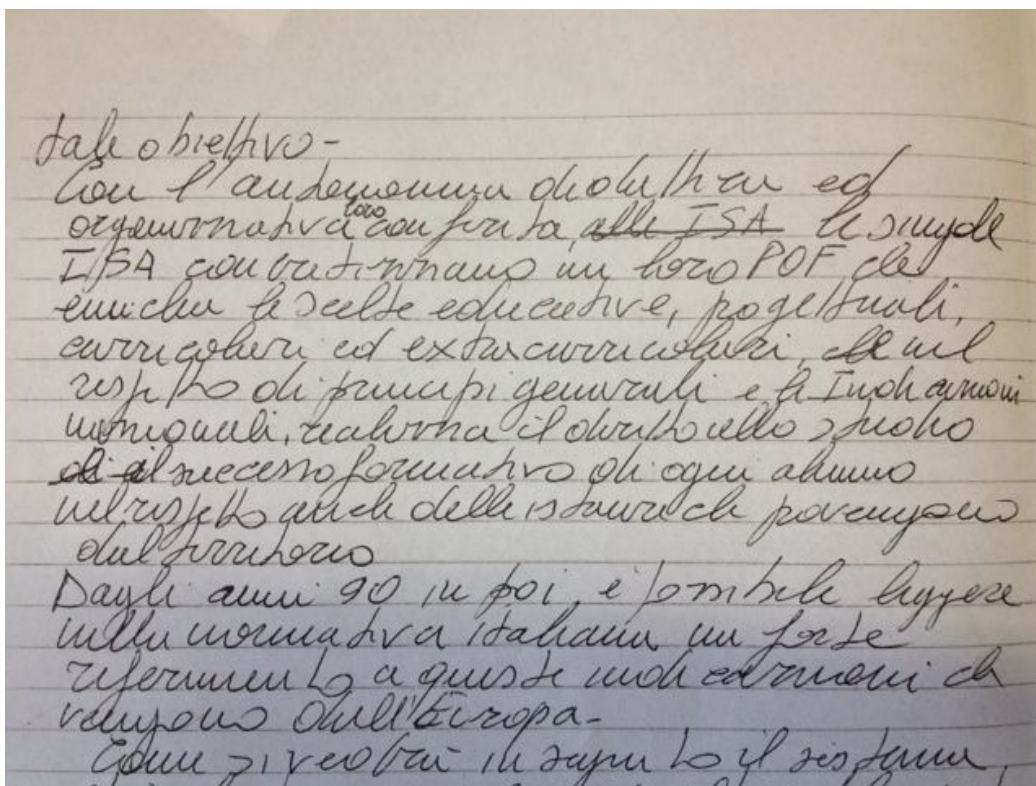 tale obiettivo-
Con l'autonomia didattica ed
organizzativa loro conferita, alle ISA le singole
ISA confezionano un loro POF che
enuclea le scelte educative, progettuali,
curricolari ed extracurricolari, che nel
rispetto di principi generali e le Indicazioni
nazionali, realizza il diritto allo studio
il successo formativo di ogni alunno
nel rispetto anche delle istanze che provengono
dal territorio
Dagli anni 90 in poi, è possibile leggere
nella normativa italiana un forte
riferimento a queste indicazioni che
vengono dall'Europa-
Come si vedrà in seguito il sistema